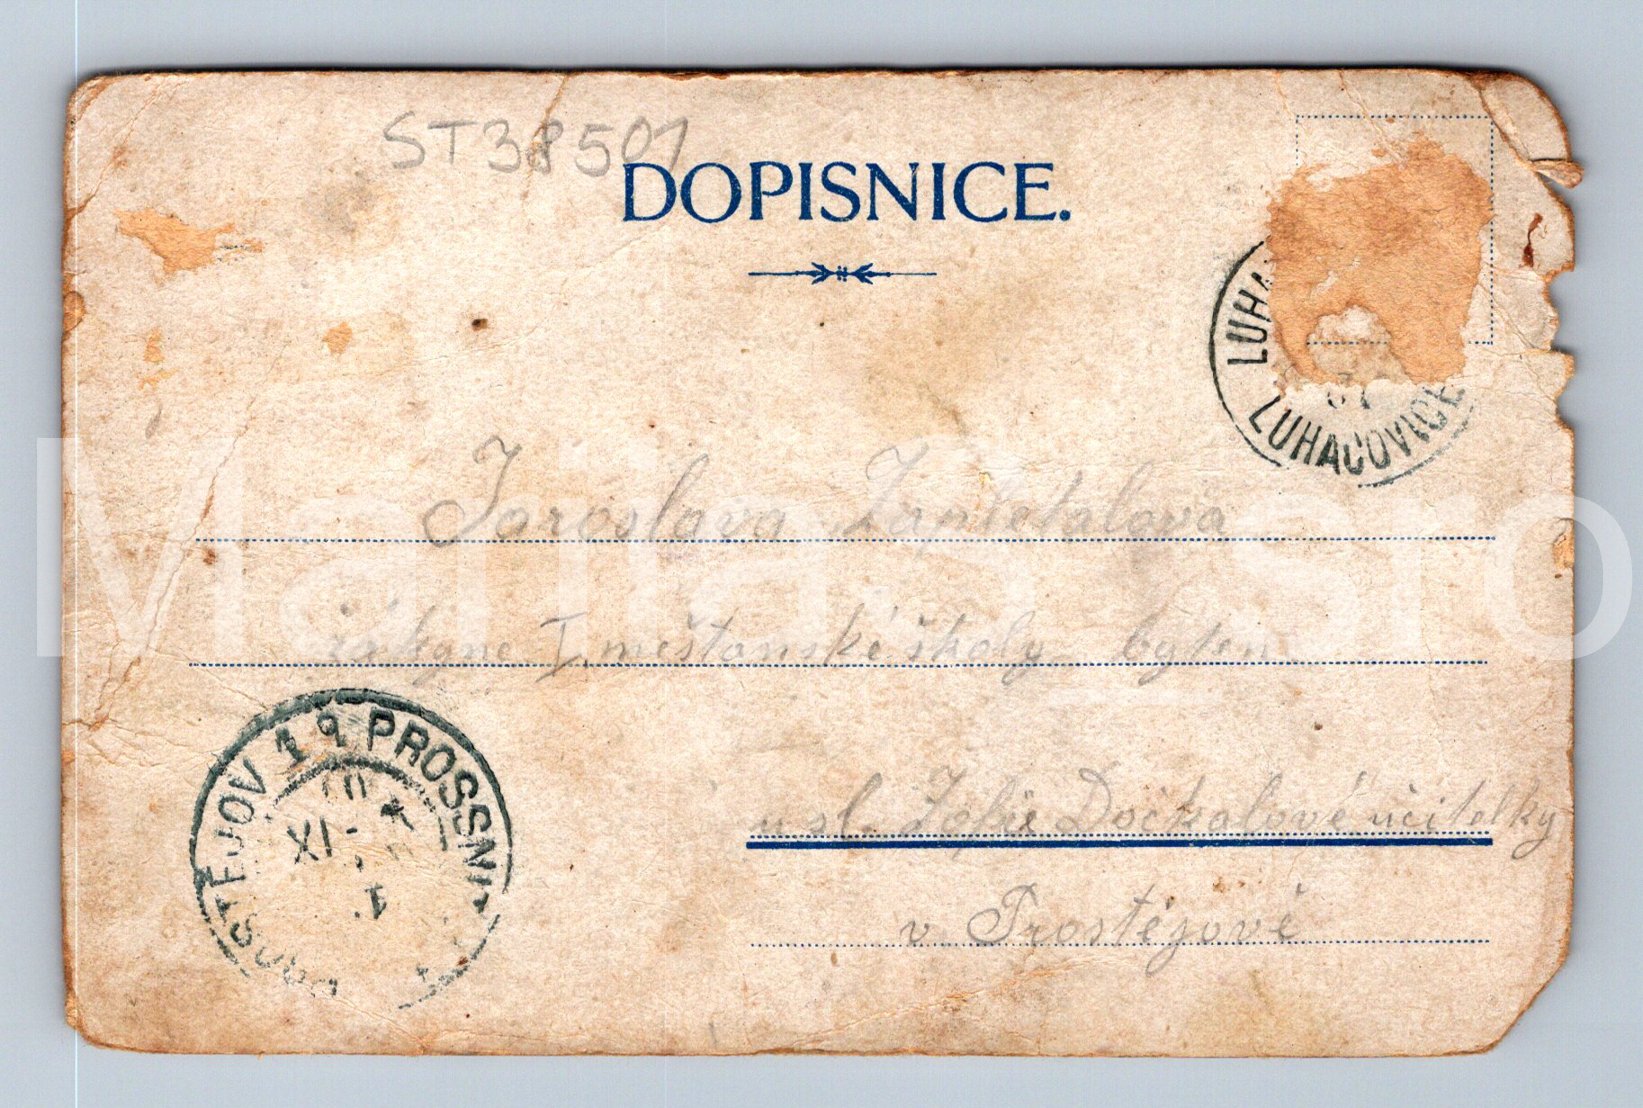 ST38501
DOPISNICE.
LUHA
LUHACOVICE
Jaroslava Zapletalova
žákyne I. meštanské školy byten
u sl. Žofie Dočkalové učitelky
v Prostějově
PROSTEJOV 1 9 PROSSNI
XI
Mamas sro